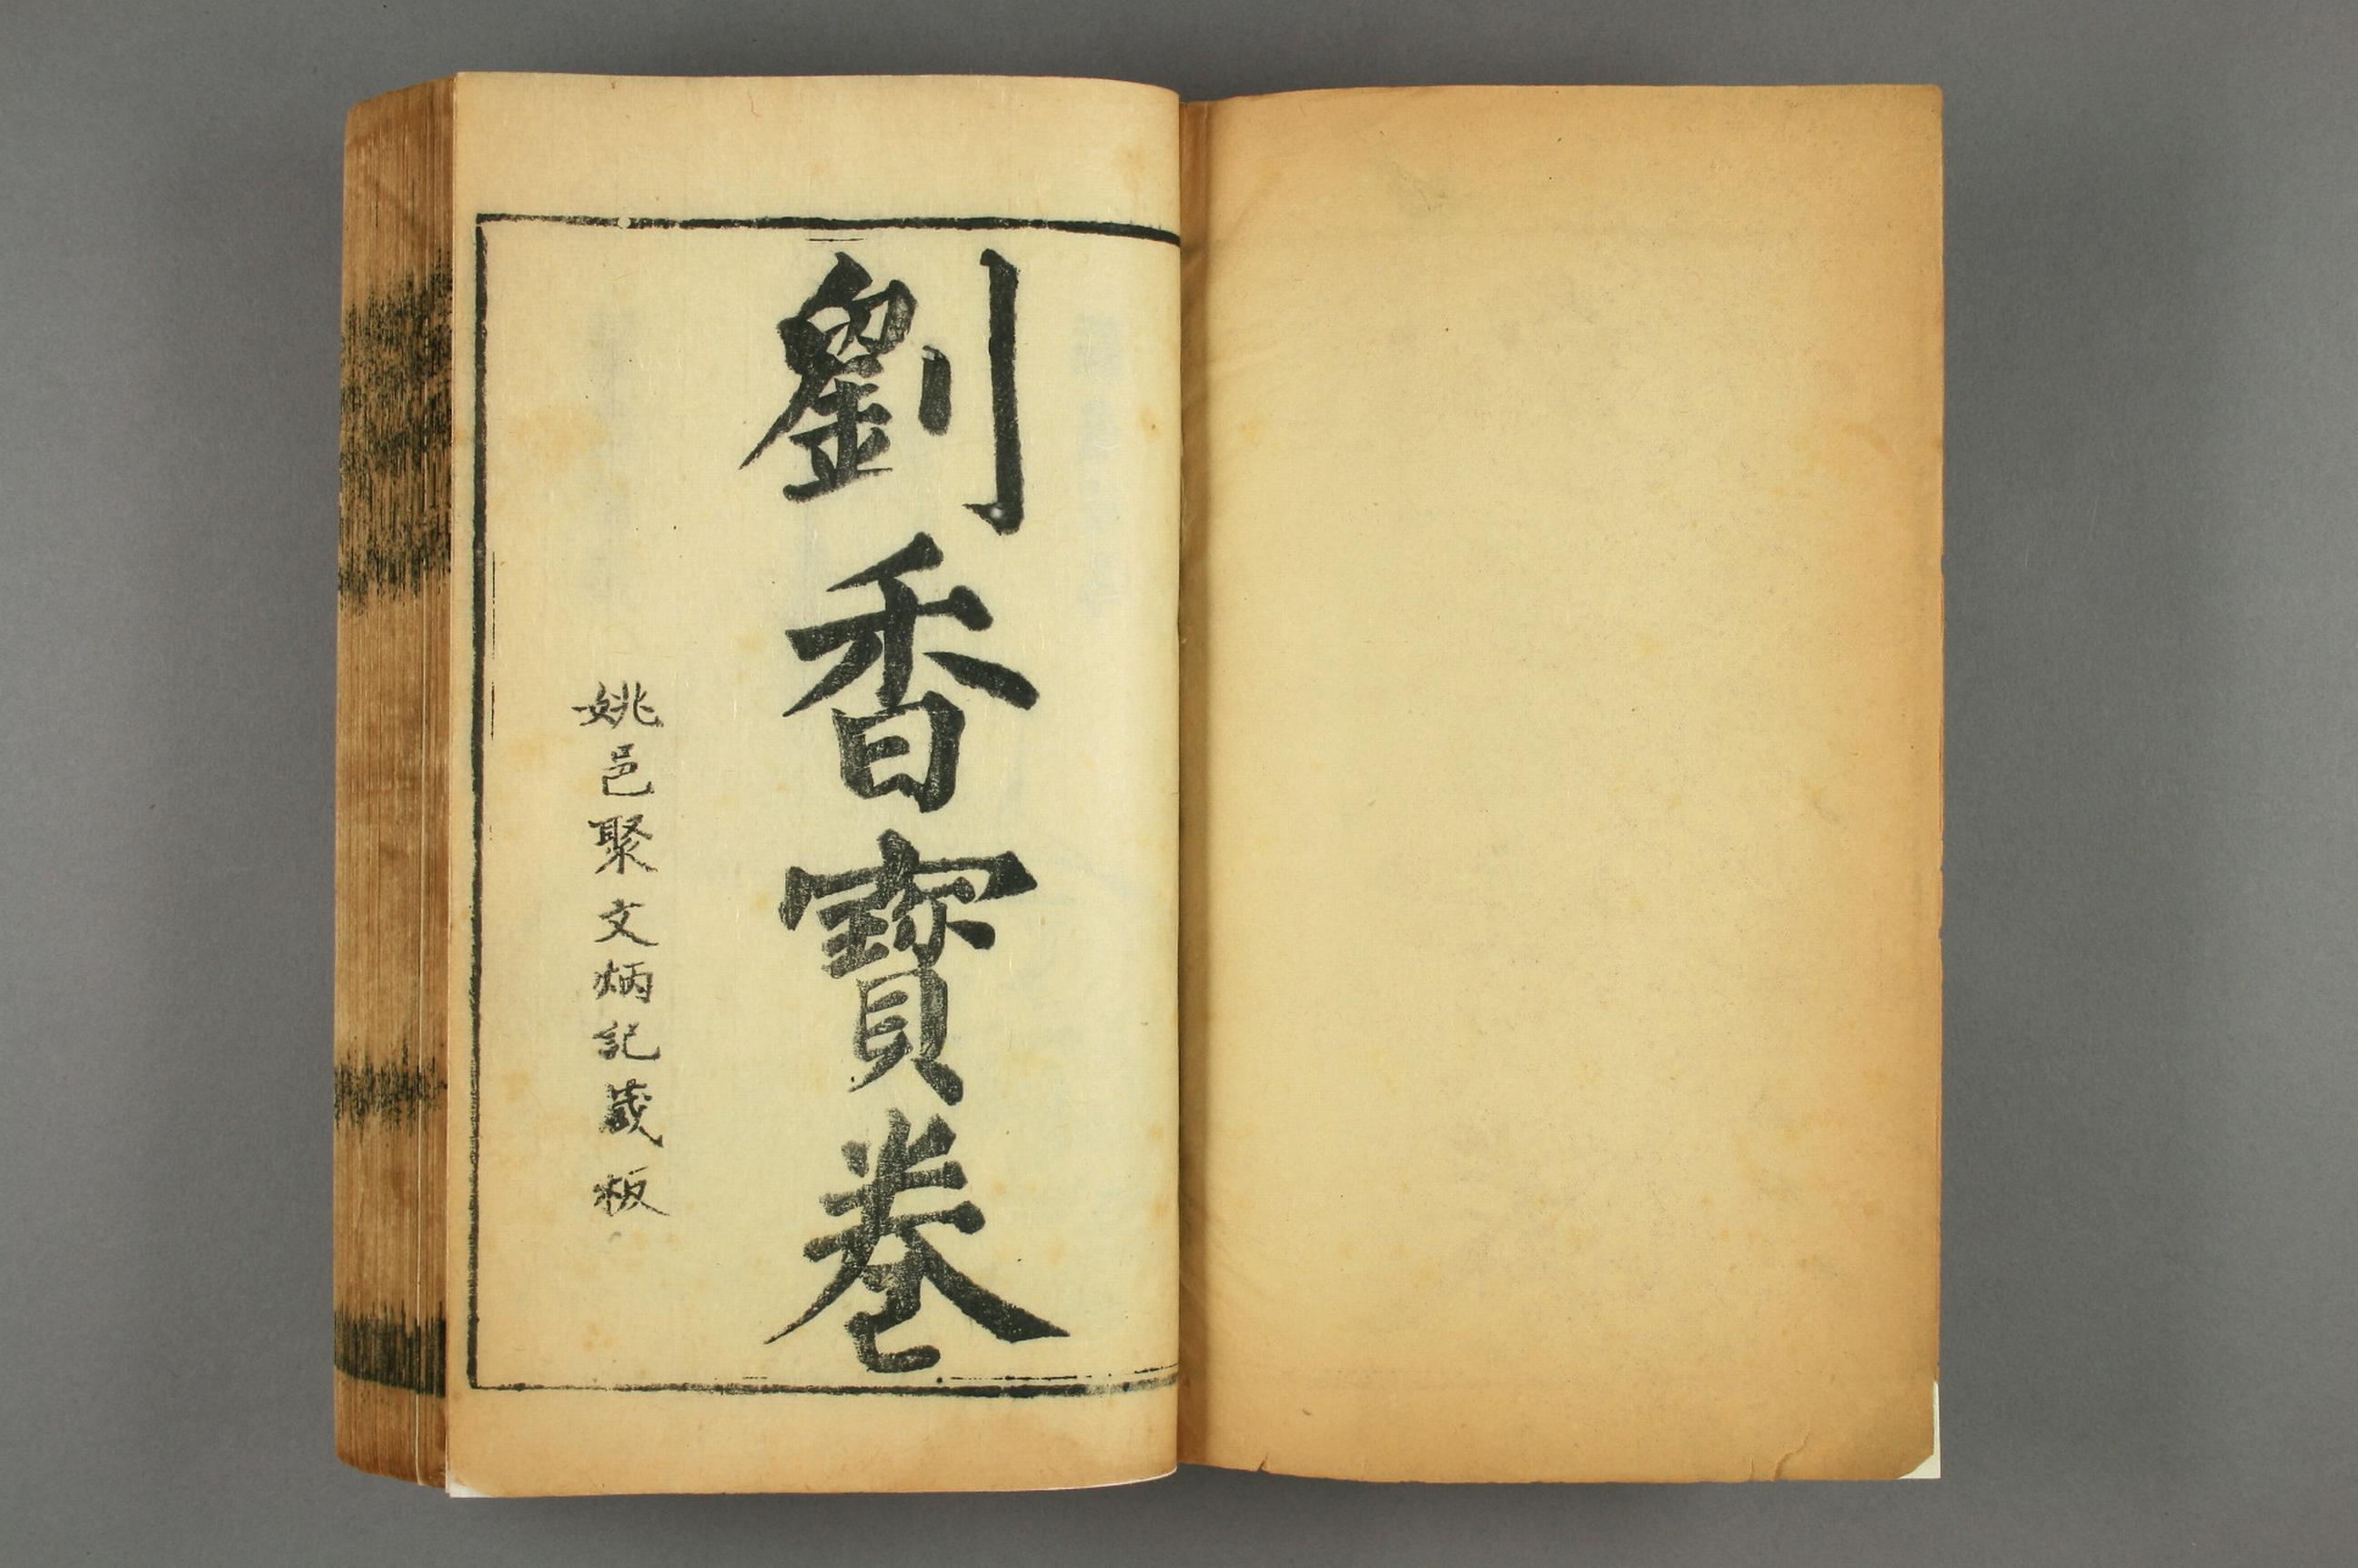 劉香寶卷
姚邑聚文炳記蔵板